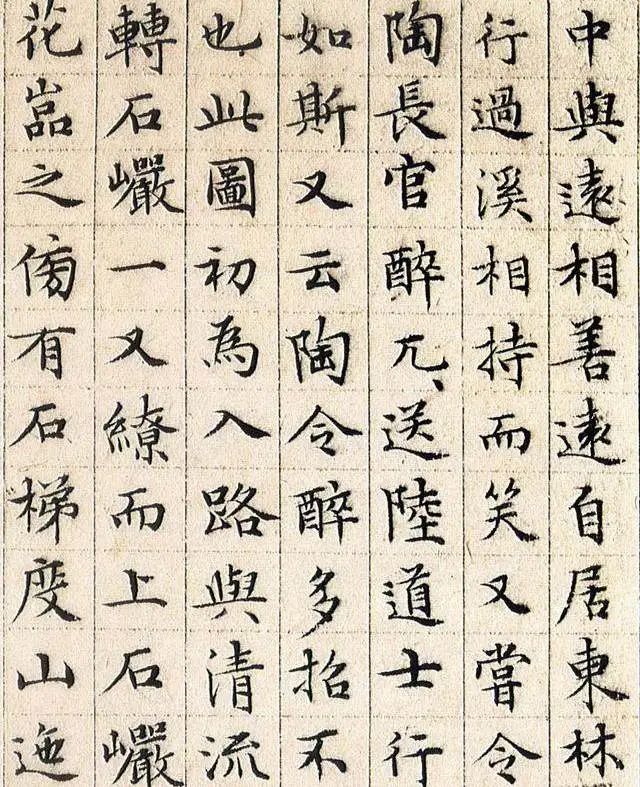 中與遠相善遠自居東林
行過溪相持而笑又嘗令
陶長官醉兀、送陸道士行
如斯又云陶令醉多招不
也此圖初為入路與清流
轉石巗一又繚而上石巗
花嵓之傍有石梯度山迤